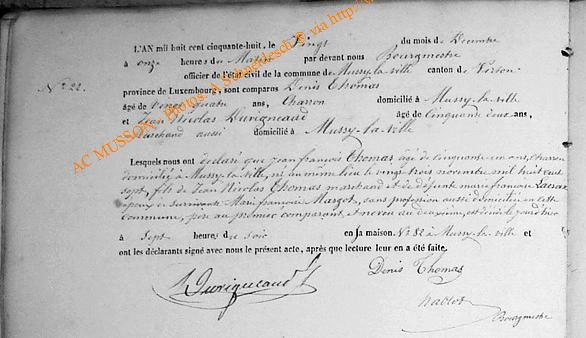 L'AN mil huit cent cinquante-huit, le Vingt du mois de Décembre
à onze heures du Matin par devant nous Bourgmestre
officier de l'état civil de la commune de Mussy-la-ville canton de Virton
N° 22.
province de Luxembourg, sont comparus Denis Thomas
âgé de vingt quatre ans, Charron domicilié à Mussy-la-ville
et Jean Nicolas Durigneaud âgé de Cinquante deux ans,
Marchand aussi domicilié à Mussy-la-ville
Lesquels nous ont déclaré que Jean françois Thomas âgé de Cinquante en ans, Charron
domicilié à Mussy-la-ville, né au même lieu le vingt trois novembre mil huit cent
sept, fils de Jean Nicolas Thomas marchand et de défunte marie françoise
époux de survivante Marie françoise Margot, sans profession aussi domiciliée en cette
commune, père au premier comparant, et neveu au deuxième, est décédé
à Sept heures du Soir en sa maison N° 82 à Mussy-la-ville et
ont les déclarants signé avec nous le présent acte, après que lecture leur en a été faite.
Durigneaud
Denis Thomas
Bourgmestre
AC MUSSON, Photos A. © via http:/